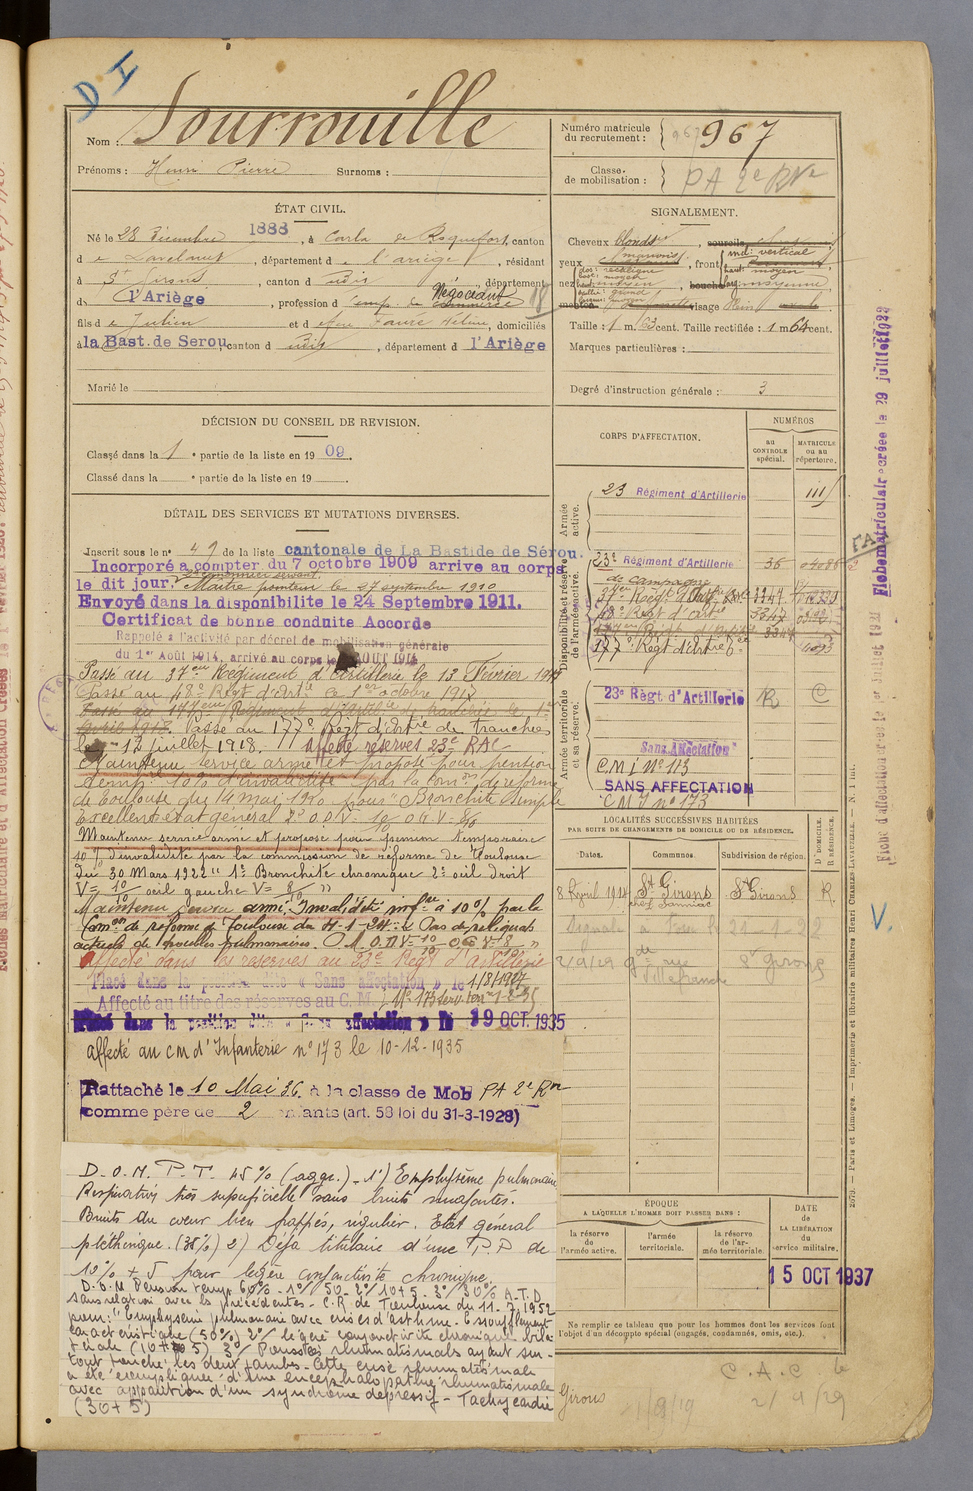 D I
Nom : Sourrouille
Prénoms : Henri Pierre Surnoms :
Numéro matricule du recrutement : 967
Classe de mobilisation : PA 2e Rve
ÉTAT CIVIL.
Né le 28 Décembre 1888, à Carla de Roquefort, canton
de Lavelanet, département de l'ariège, résidant
à St Girons, canton d udit, département
d l'Ariège, profession d'emp. de commerce Négociant
fils de Julien et de feue Faure Méline, domiciliés
à la Bast. de Serou, canton d udit, département d l'Ariège
Marié le
SIGNALEMENT.
Cheveux blonds, sourcils
yeux marrons, front incl: vertical haut: moyen
nez dos: rectiligne base: moyen haut: moyen
visage plein
Taille : 1 m. 63 cent. Taille rectifiée : 1 m 64 cent.
Marques particulières :
Degré d'instruction générale : 3
DÉCISION DU CONSEIL DE REVISION.
Classé dans la 1e partie de la liste en 1909.
Classé dans la e partie de la liste en 19
DÉTAIL DES SERVICES ET MUTATIONS DIVERSES.
Inscrit sous le n° 49 de la liste cantonale de La Bastide de Sérou.
Incorporé a compter du 7 octobre 1909 arrive au corps
le dit jour. 2e canonnier servant.
Maître pointeur le 27 septembre 1910
Envoyé dans la disponibilite le 24 Septembre 1911.
Certificat de bonne conduite Accorde
Rappelé à l'activité par décret de mobilisation générale
du 1er Août 1914, arrivé au corps le AOUT 1914
Passé au 37eme Régiment d'Artillerie le 13 Février 1917
Passé au 48e Régt d'Artie le 1er octobre 1917
Passé au 177eme Régiment d'Artillie de tranchée le 1er
Avril 1918. Passé du 177e Régt d'Artie de Tranchées
le 12 juillet 1918. Affecté réserves 23e RAC
Maintenu service armé et proposé pour pension
temp. 10% d'invalidité par la Comon de réforme
de Toulouse du 14 mai 1920 pour "Bronchite simple
Excellent état général 2° O.D V= 10/10 O.G. V= 8/10
Maintenu service armé et proposé pour pension temporaire
10% d'invalidité par la commission de réforme de Toulouse
du 30 Mars 1922 "1° Bronchite chronique 2° oeil droit
V= 10/10 oeil gauche V= 8/10 "
Maintenu service armé, Invalidité infre à 10% par la
Comon de réforme de Toulouse du 11-1-24 "Pas de reliquats
actuels de troubles pulmonaires. O.D V= 10/10 O.G V= 8/10 "
Affecté dans les réserves au 23e Régt d'artillerie
Placé dans la position dite « Sans affectation » le 1/8/1927
Affecté au titre des réserves au C. M. I N° 173
Placé dans la position dite « Sans affectation » le 19 OCT. 1935
affecté au CM d'Infanterie n° 173 le 10-12-1935
Rattaché le 10 Mai 36 à la classe de Mob PA 2e Rve
comme père de 2 enfants (art. 58 loi du 31-3-1928)
D.O.M. P.T. 45% (aggr.) - 1°) Emphysème pulmonaire
Respiration très superficielle sans bruits surajoutés.
Bruits du coeur bien frappés, régulier. Etat général
pléthorique. (35%) 2) Déjà titulaire d'une P.P de
10% + 5 pour légère conjonctivite chronique.
D.O.M Pension temp. 60% - 1°/ 50 - 2°/ 10+5 - 3°/ 30% A.T.D
sans relation avec les précédentes - C.R de Toulouse du 11.7.1952
pour: "Emphysème pulmonaire avec crises d'asthme. Essoufflement
caractéristique (50%) 2°/ légère conjonctivite chronique bila-
térale (10+5) 3°/ Poussées rhumatismales ayant sur-
tout touché les deux jambes - Cette crise rhumatismale
a été compliquée d'une encéphalopathie rhumatismale
avec apparition d'un syndrome dépressif - Tachycardie
(30+5)
CORPS D'AFFECTATION.
NUMÉROS
au CONTROLE spécial.
MATRICULE ou au répertoire.
Armée active.
23 Régiment d'Artillerie 111
Disponibilité et réserve de l'armée active.
23e Régiment d'Artillerie de campagne 36
37eme Régt d'Artie 3347
48e Régt d'Artie 3347
177e Régt d'Artie
Armée territoriale et sa réserve.
23e Règt d'Artillerie R C
Sans Affectation
C M I N° 113
SANS AFFECTATION
C M I n° 173
LOCALITÉS SUCCESSIVES HABITÉES
PAR SUITE DE CHANGEMENTS DE DOMICILE OU DE RÉSIDENCE.
Dates. Communes. Subdivision de région. D. DOMICILE. R. RÉSIDENCE.
8 Avril 1914 St Girons St Girons R.
Signalé à 21-1-22
2/9/29 9 rue Villefranche St Girons
ÉPOQUE
A LAQUELLE L'HOMME DOIT PASSER DANS :
la réserve de l'armée active.
l'armée territoriale.
la réserve de l'armée territoriale.
DATE DE LA LIBÉRATION du service militaire.
15 OCT 1937
Ne remplir ce tableau que pour les hommes dont les services font
l'objet d'un décompte spécial (engagés, condamnés, omis, etc.).
C.A.C
2/9/29
Girons
Fiche matriculaire créée le 29 juillet 1922
V.
2070. — Paris et Limoges. — Imprimerie et librairie militaires Henri CHARLES-LAVAUZELLE. — N. 1 int.